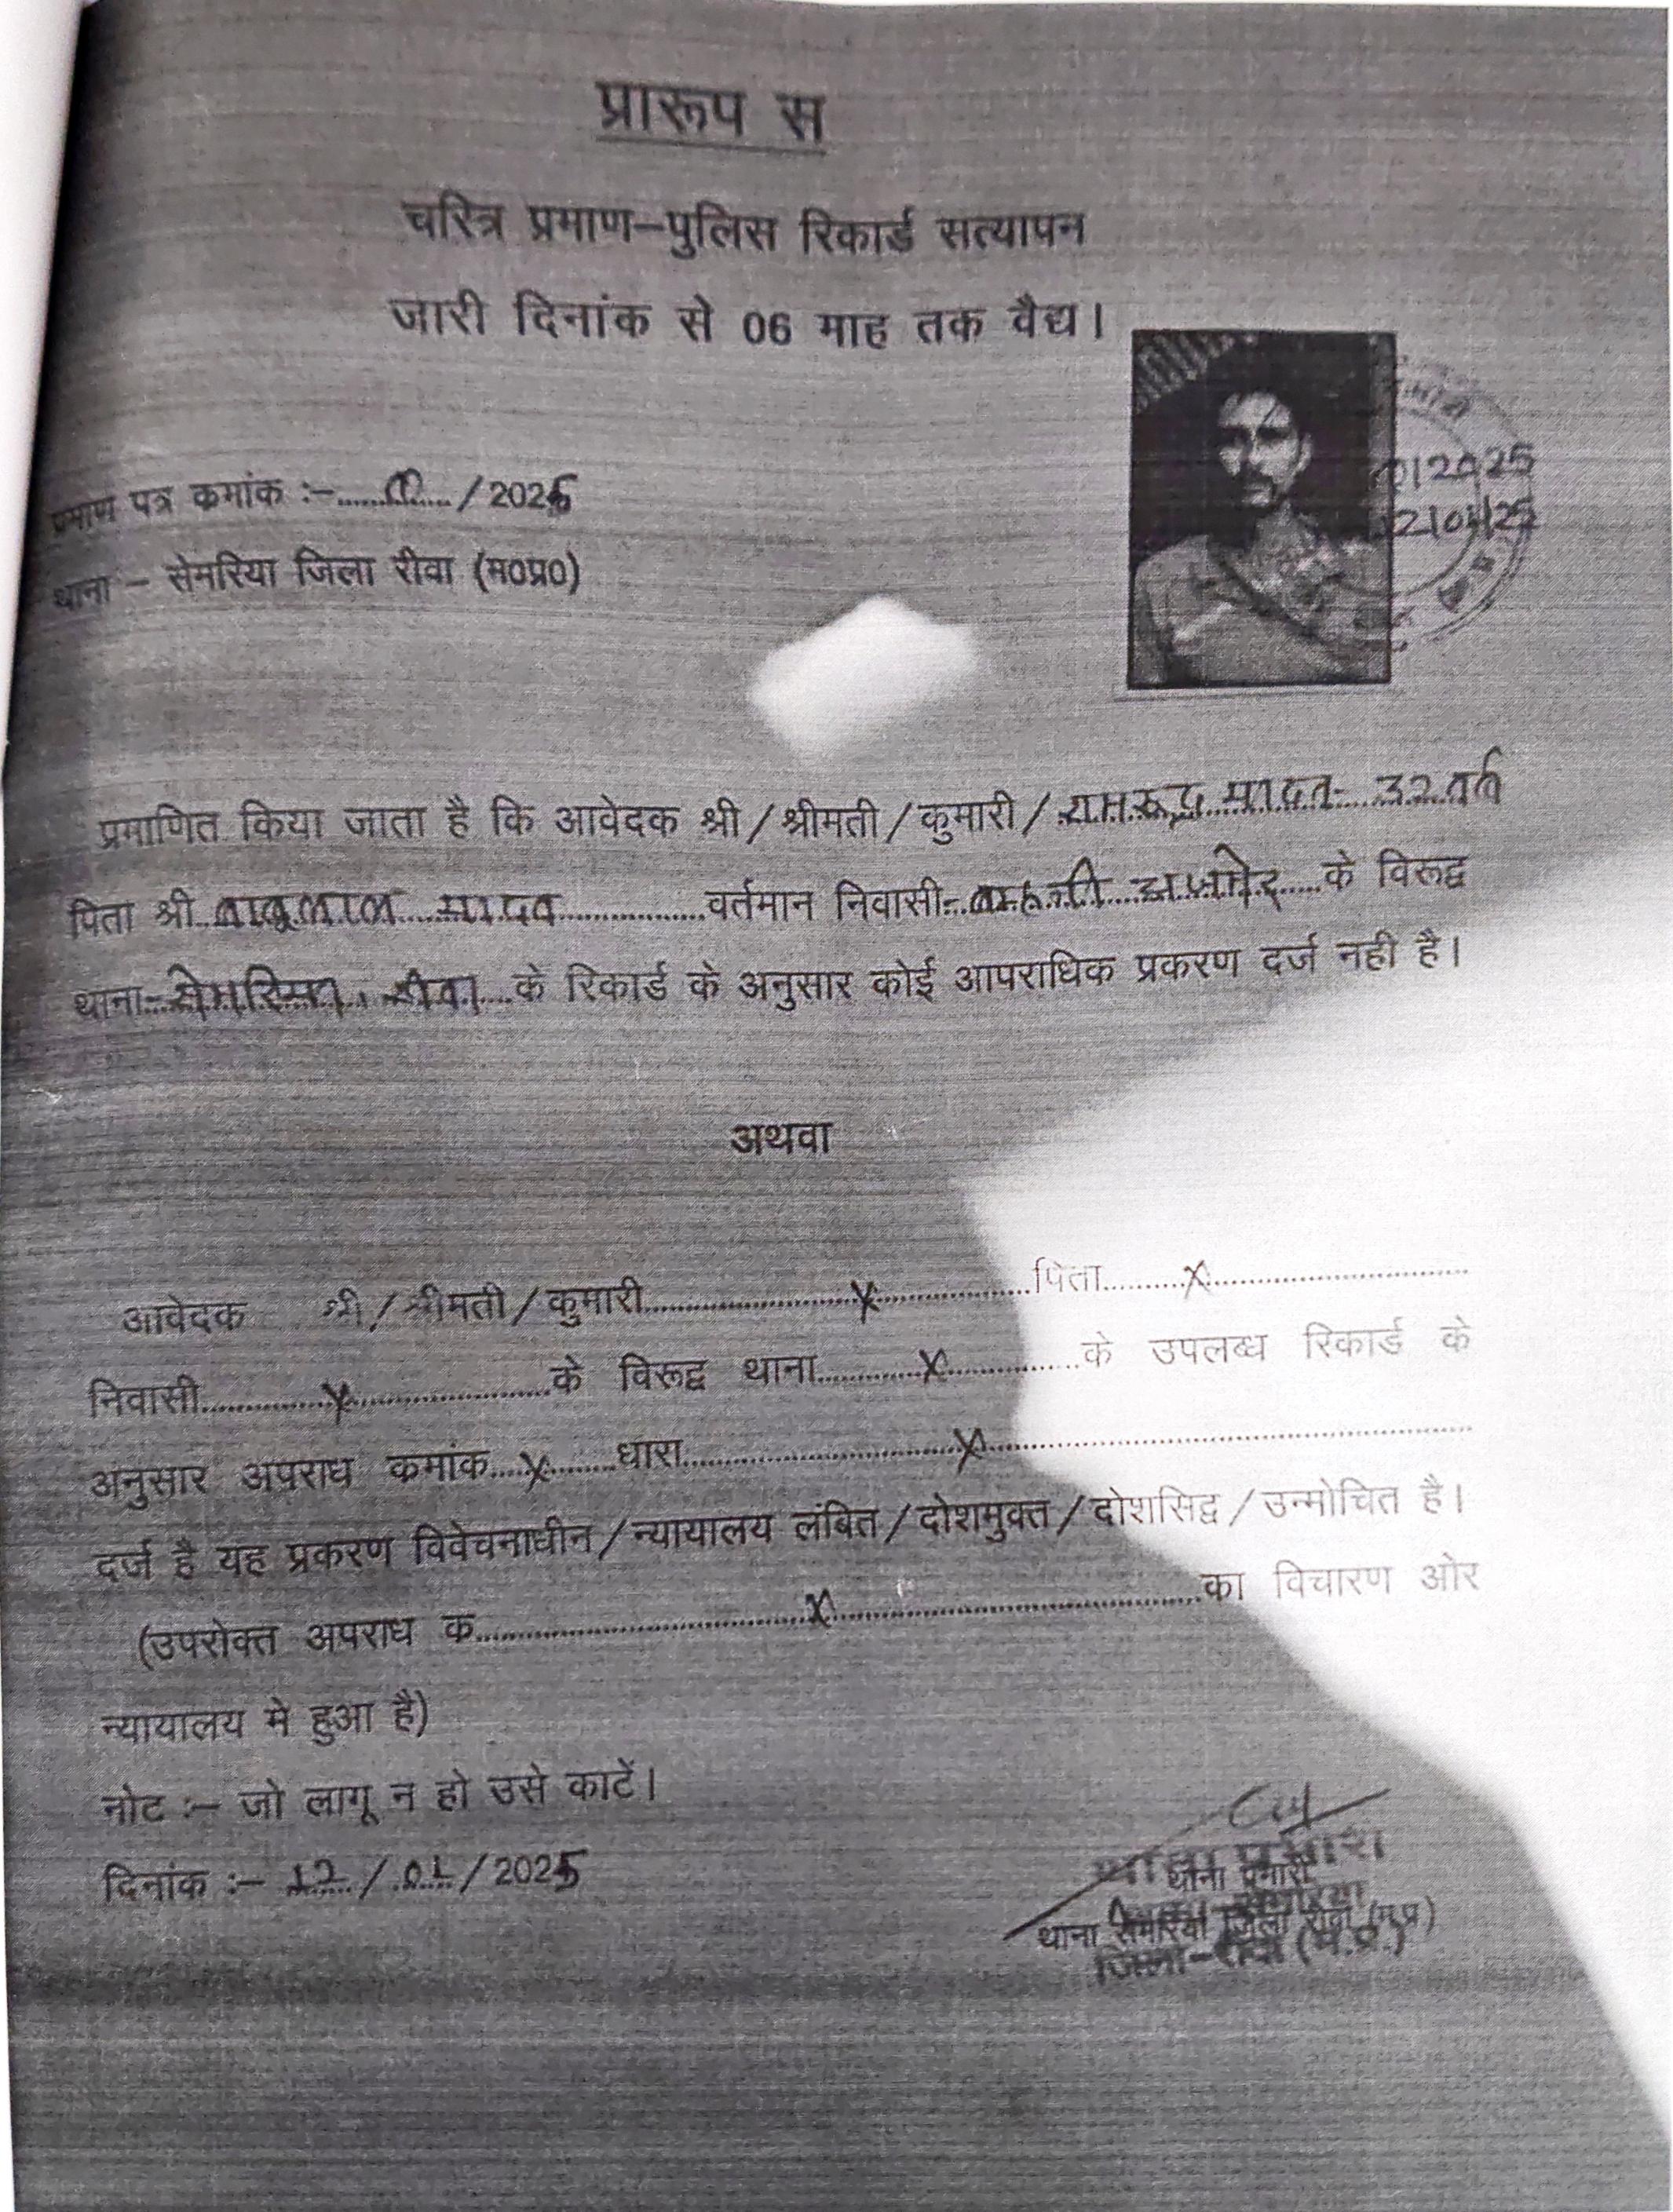 प्रारूप स
चरित्र प्रमाण–पुलिस रिकार्ड सत्यापन
जारी दिनांक से 06 माह तक वैद्य।
प्रमाण पत्र क्रमांक :–............/2025
थाना – सेमरिया जिला रीवा (म0प्र0)
0/2025
12/01/25
प्रमाणित किया जाता है कि आवेदक श्री/श्रीमती/कुमारी/ रामरूद्र यादव 32 वर्ष
पिता श्री बाबूलाल यादव वर्तमान निवासी– के विरूद्व
थाना– सेमरिया, रीवा के रिकार्ड के अनुसार कोई आपराधिक प्रकरण दर्ज नही है।
अथवा
आवेदक श्री/श्रीमती/कुमारी..........x..........पिता..........x..........
निवासी..........x..........के विरूद्व थाना..........x..........के उपलब्ध रिकार्ड के
अनुसार अपराध कमांक....x....धारा..........x..........
दर्ज है यह प्रकरण विवेचनाधीन/न्यायालय लंबित/दोशमुक्त/दोशसिद्व/उन्मोचित है।
(उपरोक्त अपराध क..........x..........का विचारण ओर
न्यायालय मे हुआ है)
नोट :– जो लागू न हो उसे काटें।
दिनांक :– 12/01/2025
थाना प्रभारी
थाना सेमरिया जिला रीवा (म.प्र)
जिला–रीवा (म.प्र.)